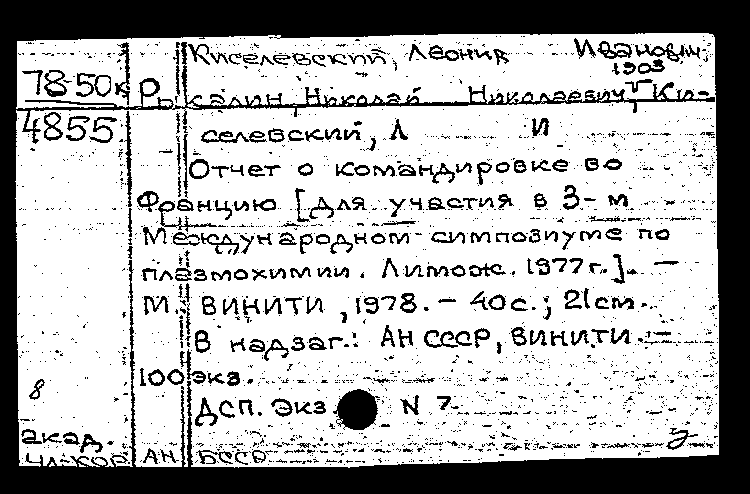 Киселевский, Леонид Иванович,
1903
78-50к Рыкалин, Николай Николаевич, Ки-
4855 селевский, Л И
Отчет о командировке во
Францию [для участия в 3-м
Международном симпозиуме по
плазмохимии. Лимож. 1977г.]. —
М.: ВИНИТИ, 1978. — 40с.; 21см.
В надзаг.: АН СССР, ВИНИТИ. —
100 экз.
8
ДСП. Экз. N 7
акад.
чл-кор АН БССР